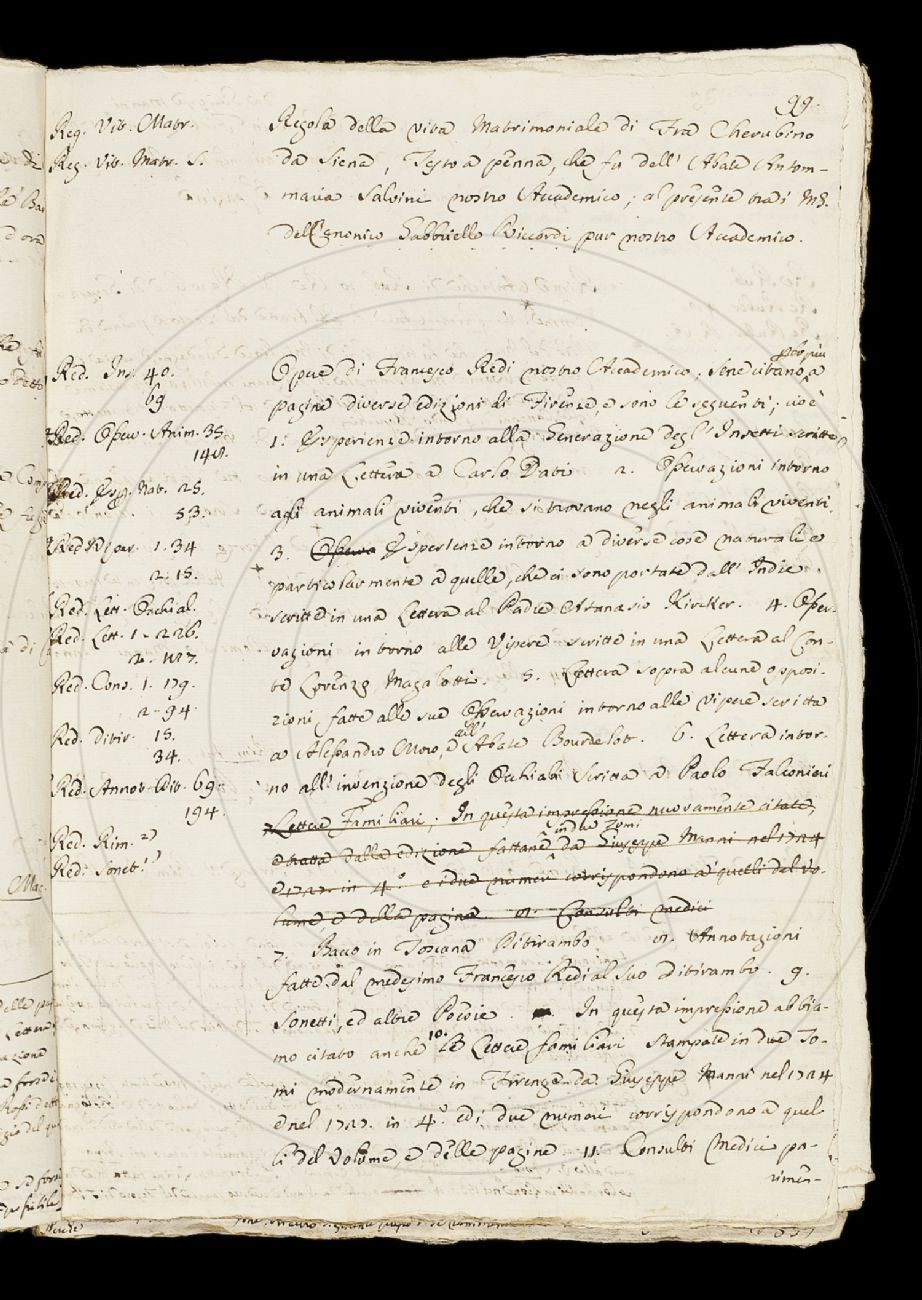 99.
Reg. Vit. Matr.
Reg. Vit. Matr. S.
Regola della vita Matrimoniale di Fra Cherubino
da Siena, Testo a penna, che fu dell' Abate Antom-
maria Salvini nostro Accademico; al presente tra i MS.
Gabbriello Riccardi pur nostro Accademico.
Red. Ins. 40.
69
Red. Osserv. Anim. 35.
148.
Red. Esp. Nat. 25.
53.
Red. Vip. 1. 34
2. 15.
Red. Lett. Occhial.
Red. Lett. 1. 226.
2. 187.
Red. Cons. 1. 179.
2. 94.
Red. Ditir. 15.
34.
Red. Annot. Dit. 69.
194.
Red. Rim.
Red. Sonet.
Opere di Francesco Redi nostro Accademico; sene citano a
per lo più
pagine diverse edizioni di Firenze, e sono le seguenti; cioè
1. Esperienze intorno alla Generazione degl' Insetti scritte
in una Lettera a Carlo Dati 2. Osservazioni intorno
agli animali viventi, che si trovano negli animali viventi
3. Opera Esperienze intorno a diverse cose naturali e
particolarmente a quelle, che ci sono portate dall' Indie
scritte in una Lettera al Padre Atanasio Kircker. 4. Osser-
vazioni intorno alle Vipere scritte in una Lettera al Con-
te Lorenzo Magalotti. 5. Lettera sopra alcune opposi-
zioni fatte alle sue Osservazioni intorno alle vipere scritta
a Alessandro Moro, e all' Abate Bourdelot. 6. Lettera intor-
no all' invenzione degli Occhiali scritta a Paolo Falconieri
7 Lettere Familiari; In questa impressione nuovamente citate,
e tratta dalla edizione fattane in due Tomi da Giuseppe Manni nel 1724
e 1727 in 4.° e i due numeri corrispondono a quelli del vo-
lume e della pagina. 8. Consulti medici
7. Bacco in Toscana Ditirambo. 8. Annotazioni
fatte dal medesimo Francesco Redi al suo ditirambo. 9.
Sonetti, ed altre Poesie. In questa impressione abbia-
mo citato anche 10. le Lettere familiari stampate in due To-
mi modernamente in Firenze da Giuseppe Manni nel 1724
e nel 1727. in 4.° ed i due numeri corrispondono a quel-
li del Volume, e delle pagine 11. Consulti Medici pa-
rimen-